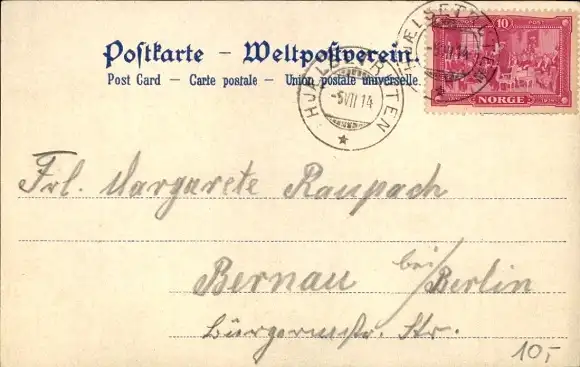 Postkarte – Weltpostverein.
Post Card – Carte postale – Union postale universelle.
POST 10 POST
NORGE
HJÆLSETTEN
-5 VII 14
HJÆLSETTEN
-5 VII 14
Frl. Margarete Raupach
Bernau bei/Berlin
Bürgermstr. Str.
10,-